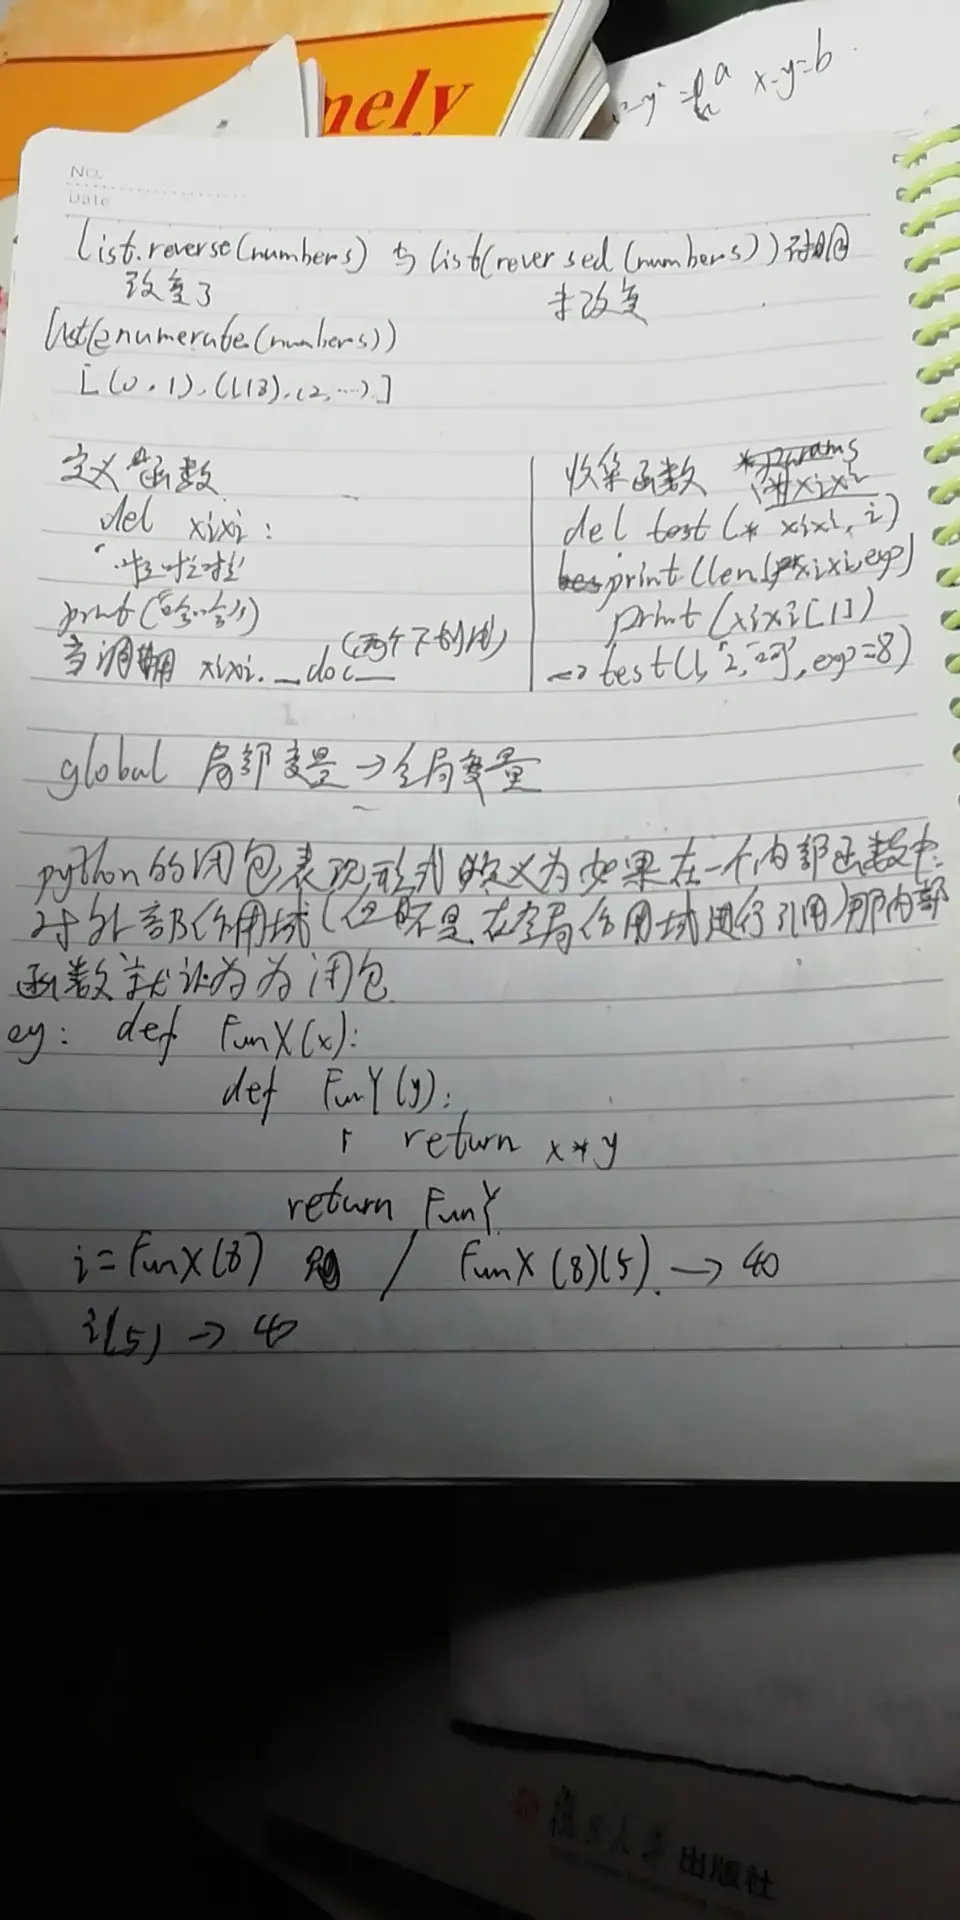 nely
x-y=b
No.
Date
list.reverse(numbers) 与 list(reversed(numbers))
改变了 未改变
list(enumerate(numbers))
[(0,1),(1,13),(2,…)]
定义 函数
def xixi:
print("哈哈")
当调用 xixi.__doc__ (两个下划线)
收集函数 *params
def test(* xixi, i)
print(len(xixi, exp)
print(xixi[1])
→ test(1, 2, exp=8)
global 局部变量→全局变量
python的闭包表现形式定义为如果在一个内部函数中,
对外部作用域(但不是在全局作用域进行引用)那内部
函数就认为为闭包
eg: def FunX(x):
def FunY(y):
return x*y
return FunY
i=FunX(8) / FunX(8)(5) → 40
i(5) → 40
复旦大学出版社